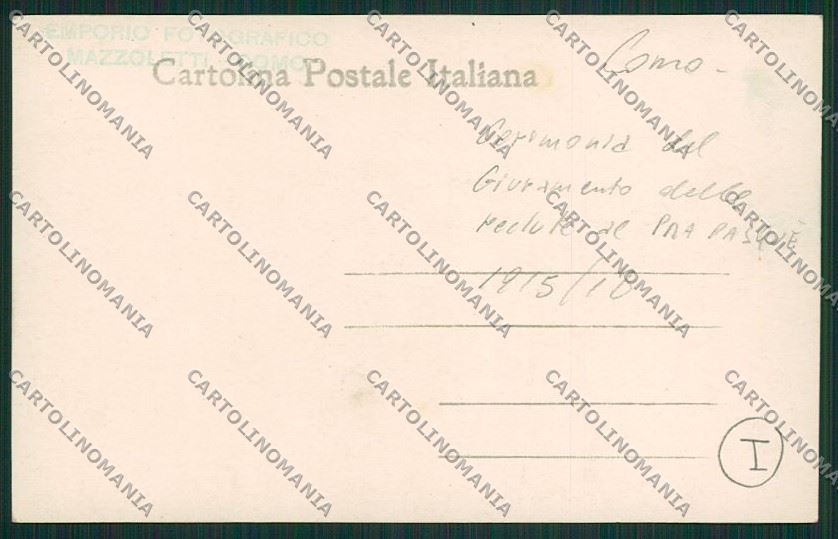 EMPORIO FOTOGRAFICO
MAZZOLETTI COMO
Cartolina Postale Italiana
Como -
Cerimonia del
Giuramento delle
reclute al PRA PASQUÈ
1915/18
I
CARTOLINOMANIA CARTOLINOMANIA CARTOLINOMANIA CARTOLINOMANIA CARTOLINOMANIA
CARTOLINOMANIA CARTOLINOMANIA CARTOLINOMANIA CARTOLINOMANIA CARTOLINOMANIA
CARTOLINOMANIA CARTOLINOMANIA CARTOLINOMANIA CARTOLINOMANIA CARTOLINOMANIA